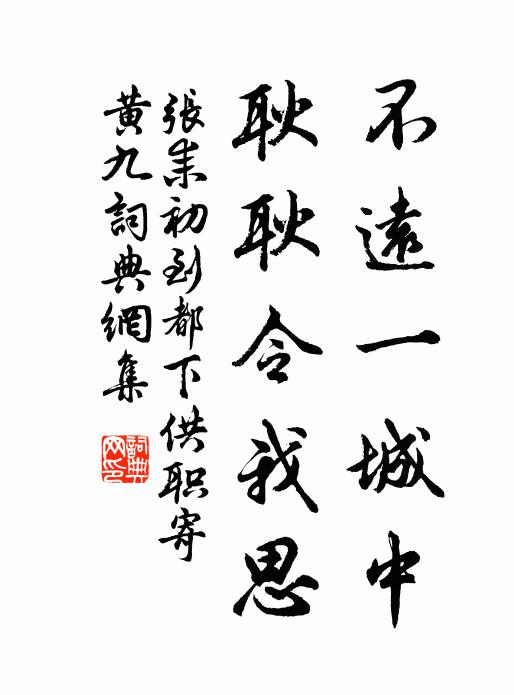 不遠一城中
耿耿令我思
張耒初到都下供职寄
黃九詞典網集
詞典
网印